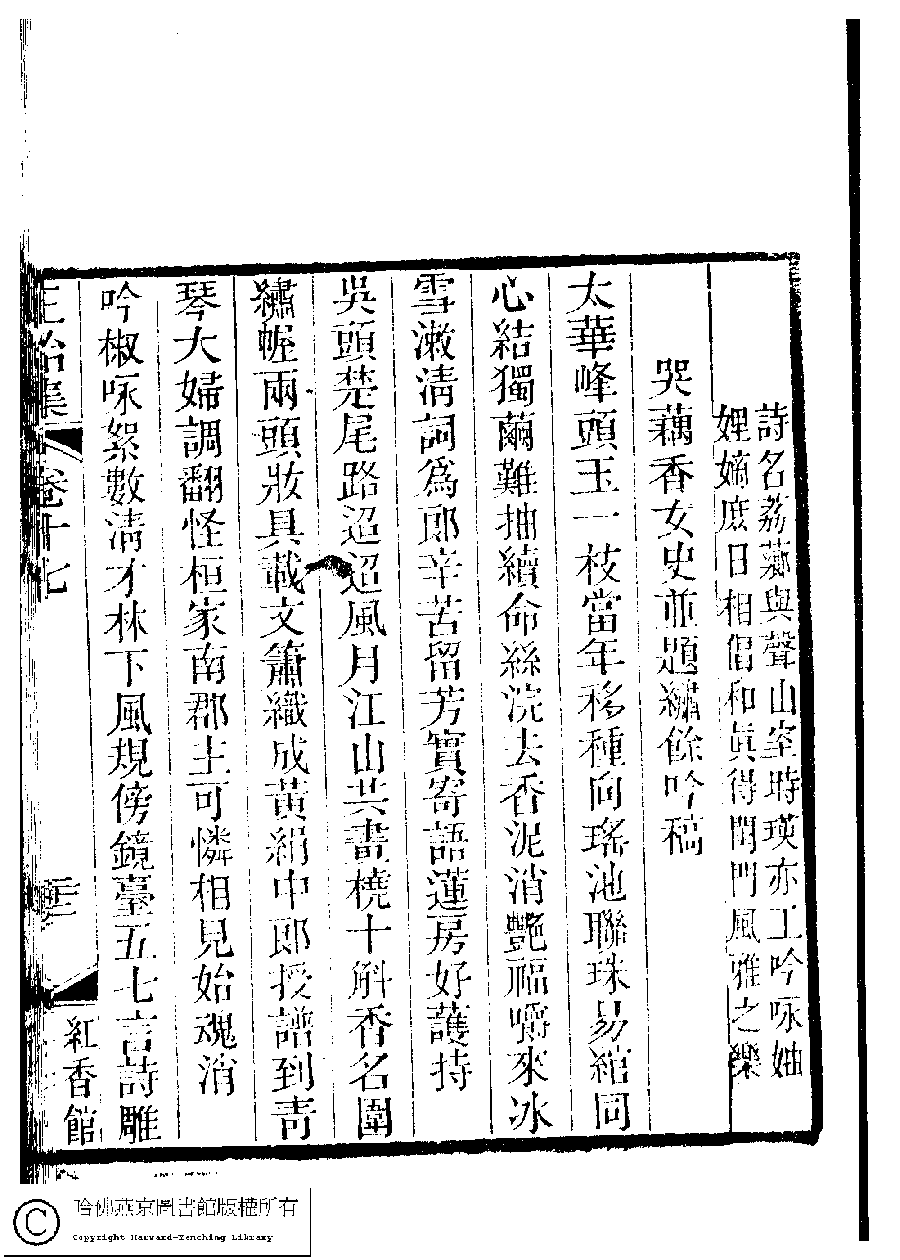 詩名荔薌與聲山室時瑛亦工吟咏妯
娌嫡庶日相倡和眞得閨門風雅之樂
哭藕香女史並題繡餘吟稿
太華峰頭玉一枝當年移種向瑤池聯珠易綰同
心結獨繭難抽續命絲浣去香泥消艷福嚼來冰
雪漱淸詞爲郎辛苦留芳實寄語蓮房好護持
吳頭楚尾路迢迢風月江山共畫橈十斛香名圍
繡幄兩頭妝具載文簫織成黃絹中郎授譜到靑
琴大婦調翻怪桓家南郡主可憐相見始魂消
吟椒咏絮數淸才林下風規傍鏡臺五七言詩雕
正始集 卷十七 紅香館
哈佛燕京圖書館版權所有
Copyright Harvard-Yenching Library